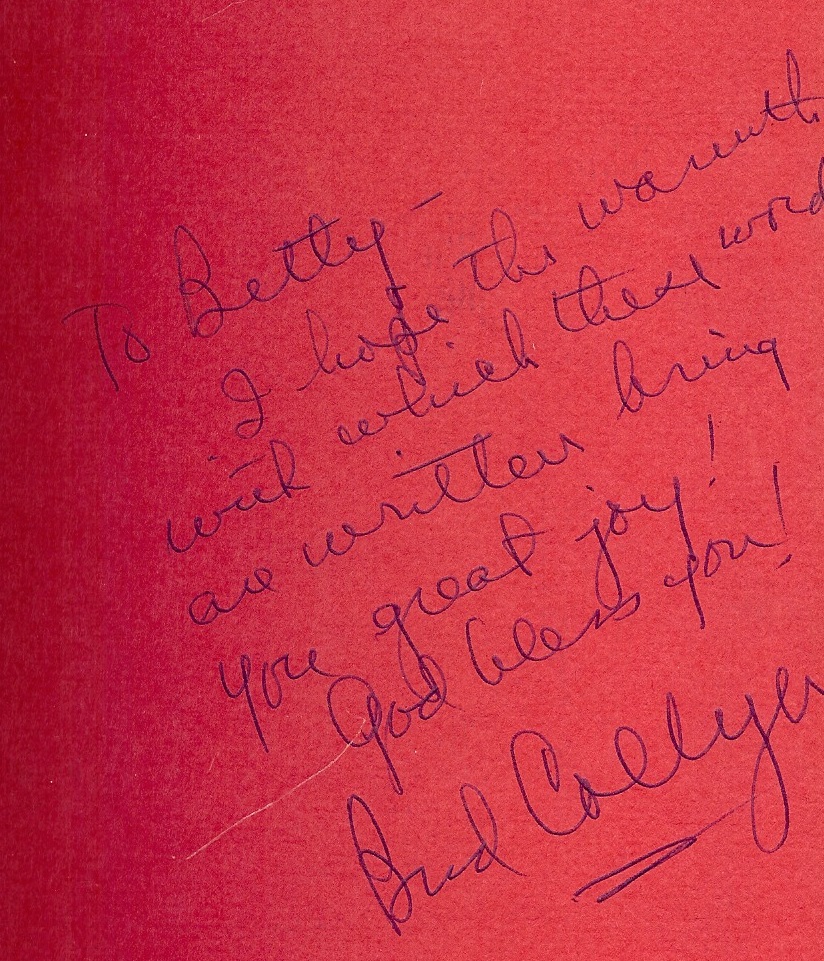 To Betty –
I hope the warmth
with which these word
are written bring
you great joy!
God bless you!
Bud Collyer